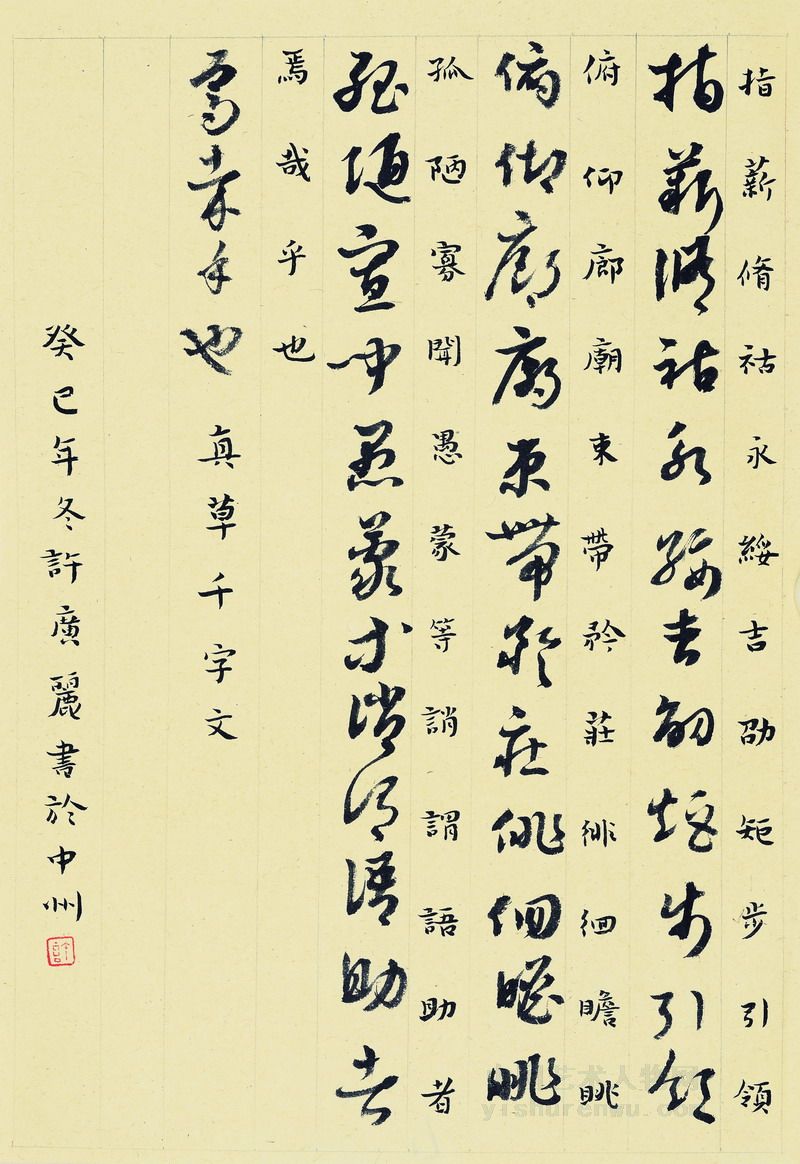 指薪脩祜永綏吉劭矩步引領
指薪脩祜永綏吉劭矩步引領
俯仰廊廟束帶矜莊徘徊瞻眺
俯仰廊廟束帶矜莊徘徊瞻眺
孤陋寡聞愚蒙等誚謂語助者
孤陋寡聞愚蒙等誚謂語助者
焉哉乎也
焉哉乎也 真草千字文
癸巳年冬許廣麗書於中州
許
艺术人物网
yishurenwu.com